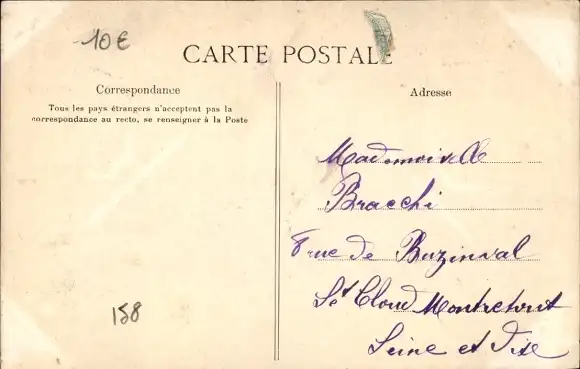 10 €
CARTE POSTALE
Correspondance
Tous les pays étrangers n'acceptent pas la
correspondance au recto, se renseigner à la Poste
158
Adresse
Mademoiselle
Bracchi
8 rue de Buzinval
St Cloud Montretout
Seine et Oise